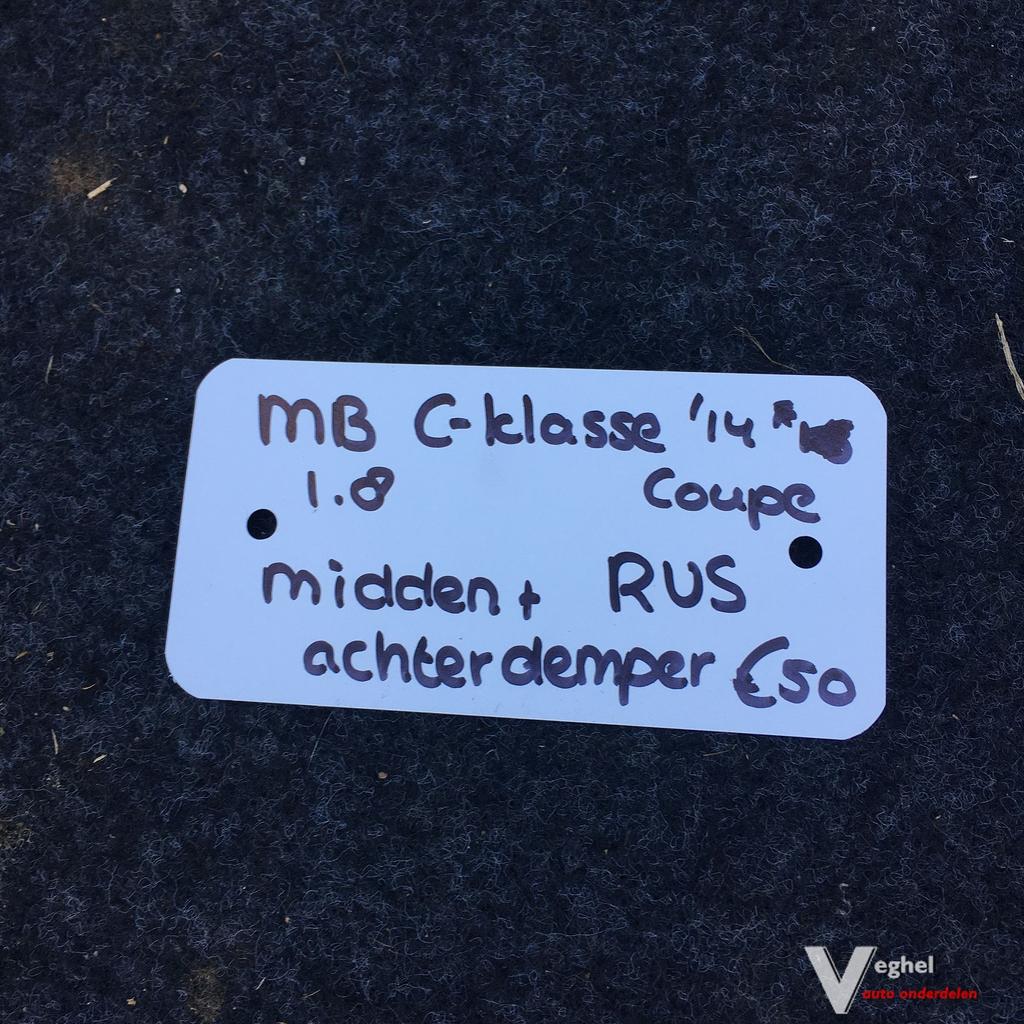 MB C-klasse '14
1.8 Coupe
midden + RUS
achterdemper €50
Veghel
auto onderdelen